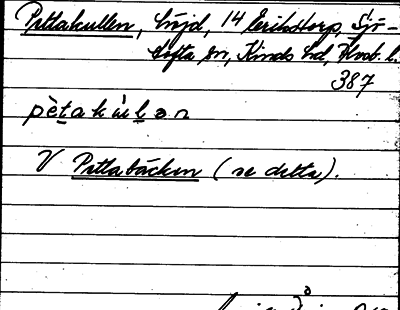 Pettakullen, höjd, 14 Erikstorp, Sjö-
tofta sn, Kinds hd, Älvsb. l.
387
pètakùlən
V Pettabäcken (se detta).